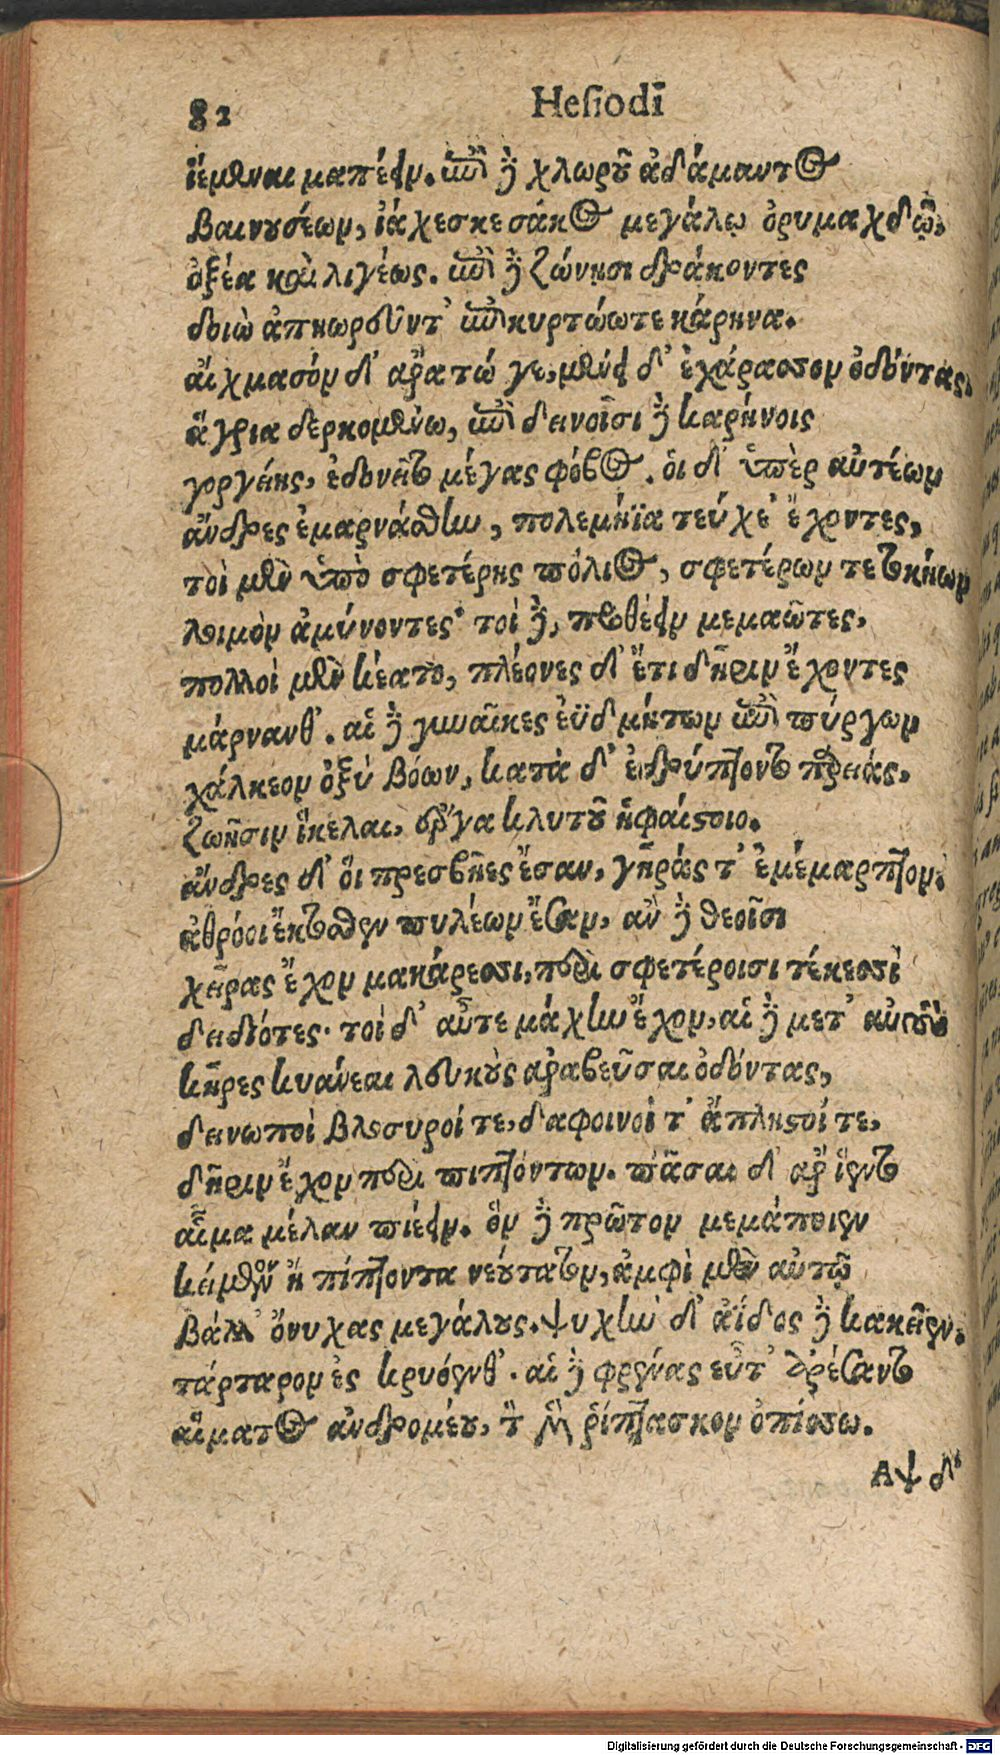 82 Hesiodi
ἱέμεναι μαπέειν. ἐπὶ δὲ χλωροῦ ἀδάμαντος
βαινουσέων, ἰάχεσκε σάκος μεγάλῳ ὀρυμαγδῷ,
ὀξέα καὶ λιγέως. ἐπὶ δὲ ζώνῃσι δράκοντες
δοιὼ ἀπῃωρεῦντ' ἐπικυρτώωτε κάρηνα.
λίχμαζον δ' ἄρα τώ γε, μένει δ' ἐχάρασσον ὀδόντας,
ἄγρια δερκομένω, ἐπὶ δεινοῖσι δὲ καρήνοις
γοργείης, ἐδονεῖτο μέγας φόβος. οἱ δ' ὑπὲρ αὐτέων
ἄνδρες ἐμαρνάσθην, πολεμήϊα τεύχε' ἔχοντες,
τοὶ μὲν ὑπὸ σφετέρης πόλιος, σφετέρων τε τοκήων
λοιμὸν ἀμύνοντες· τοὶ δὲ, πραθέειν μεμαῶτες,
πολλοὶ μὲν κέατο, πλέονες δ' ἔτι δῆριν ἔχοντες
μάρνανθ'. αἱ δὲ γυναῖκες ἐϋδμήτων ἐπὶ πύργων
χάλκεον ὀξὺ βόων, κατὰ δ' ἐδρύπτοντο παρειάς,
ζωῇσιν ἴκελαι, ἔργα κλυτοῦ ἡφαίστοιο.
ἄνδρες δ' οἳ πρεσβῆες ἔσαν, γῆράς τ' ἐμέμαρπτον,
ἀθρόοι ἔκτοσθεν πυλέων ἔσαν, ἂν δὲ θεοῖσι
χεῖρας ἔχον μακάρεσσι, περὶ σφετέροισι τέκεσσι
δειδιότες· τοὶ δ' αὖτε μάχην ἔχον, αἱ δὲ μετ' αὐτοὺς
κῆρες κυάνεαι λευκοὺς ἀραβεῦσαι ὀδόντας,
δεινωποὶ βλοσυροί τε, δαφοινοὶ τ' ἄπληστοί τε,
δῆριν ἔχον περὶ πιπτόντων. πᾶσαι δ' ἄρ' ἵεντο
αἷμα μέλαν πιέειν. ὃν δὲ πρῶτον μεμάποιεν
κείμενον ἢ πίπτοντα νεούτατον, ἀμφὶ μὲν αὐτῷ
βάλλ' ὄνυχας μεγάλους. ψυχὴν δ' ἄϊδος δὲ κακεῖεν.
τάρταρον ἐς κρυόενθ'. αἱ δὲ φρένας εὖτ' ἀρέσαντο
αἵματος ἀνδρομέου, τὸν μὲν ῥίπτασκον ὀπίσσω.
Αψ δ'
Digitalisierung gefördert durch die Deutsche Forschungsgemeinschaft - DFG